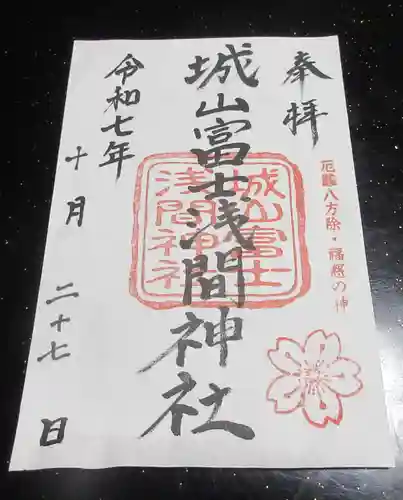 奉拝
厄難八方除・福招の神
城山富士浅間神社
城山富士
浅間神社
令和七年
十月二十七日